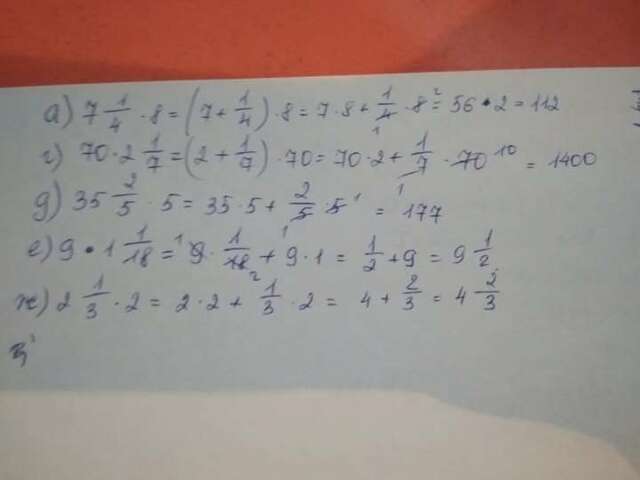 а) 7 1/4 · 8 = (7 + 1/4) · 8 = 7 · 8 + 1/4 1 · 8 2 = 56 · 2 = 112
г) 70 · 2 1/7 = (2 + 1/7) · 70 = 70 · 2 + 1/7 1 · 70 10 = 1400
д) 35 2/5 · 5 = 35 · 5 + 2/5 1 · 5 1 = 177
е) 9 · 1 1/18 = 1 9 · 1/18 2 + 9 · 1 = 1/2 + 9 = 9 1/2
ж) 2 1/3 · 2 = 2 · 2 + 1/3 · 2 = 4 + 2/3 = 4 2/3